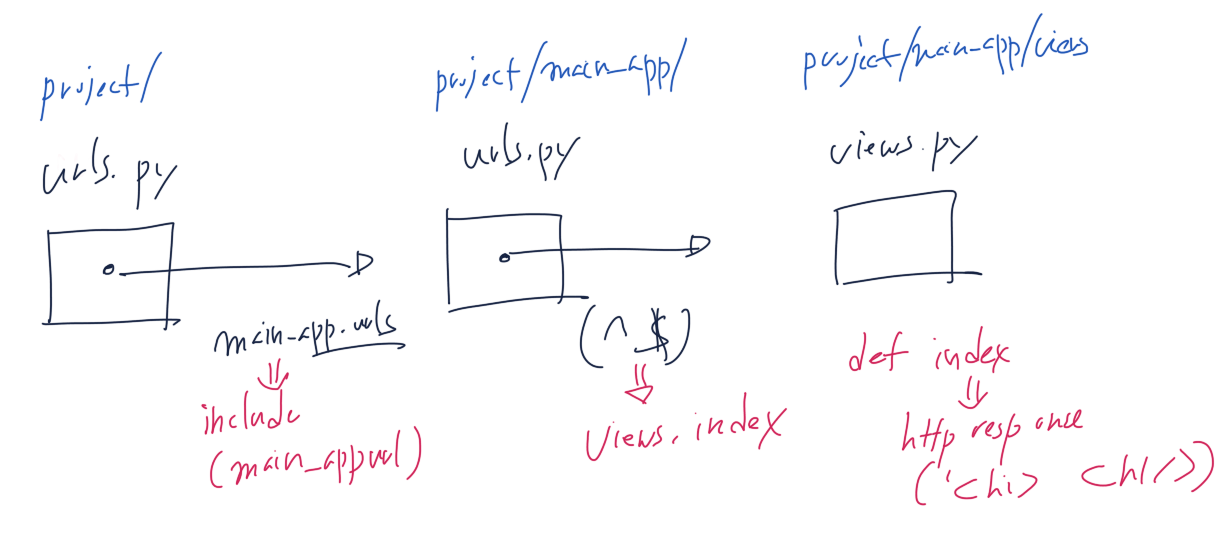 project/
urls.py
main_app.urls
include
(main_appurl)
project/main_app/
urls.py
(^ $)
views.index
project/main_app/views
views.py
def index
http response
('<h1> <h1/>)